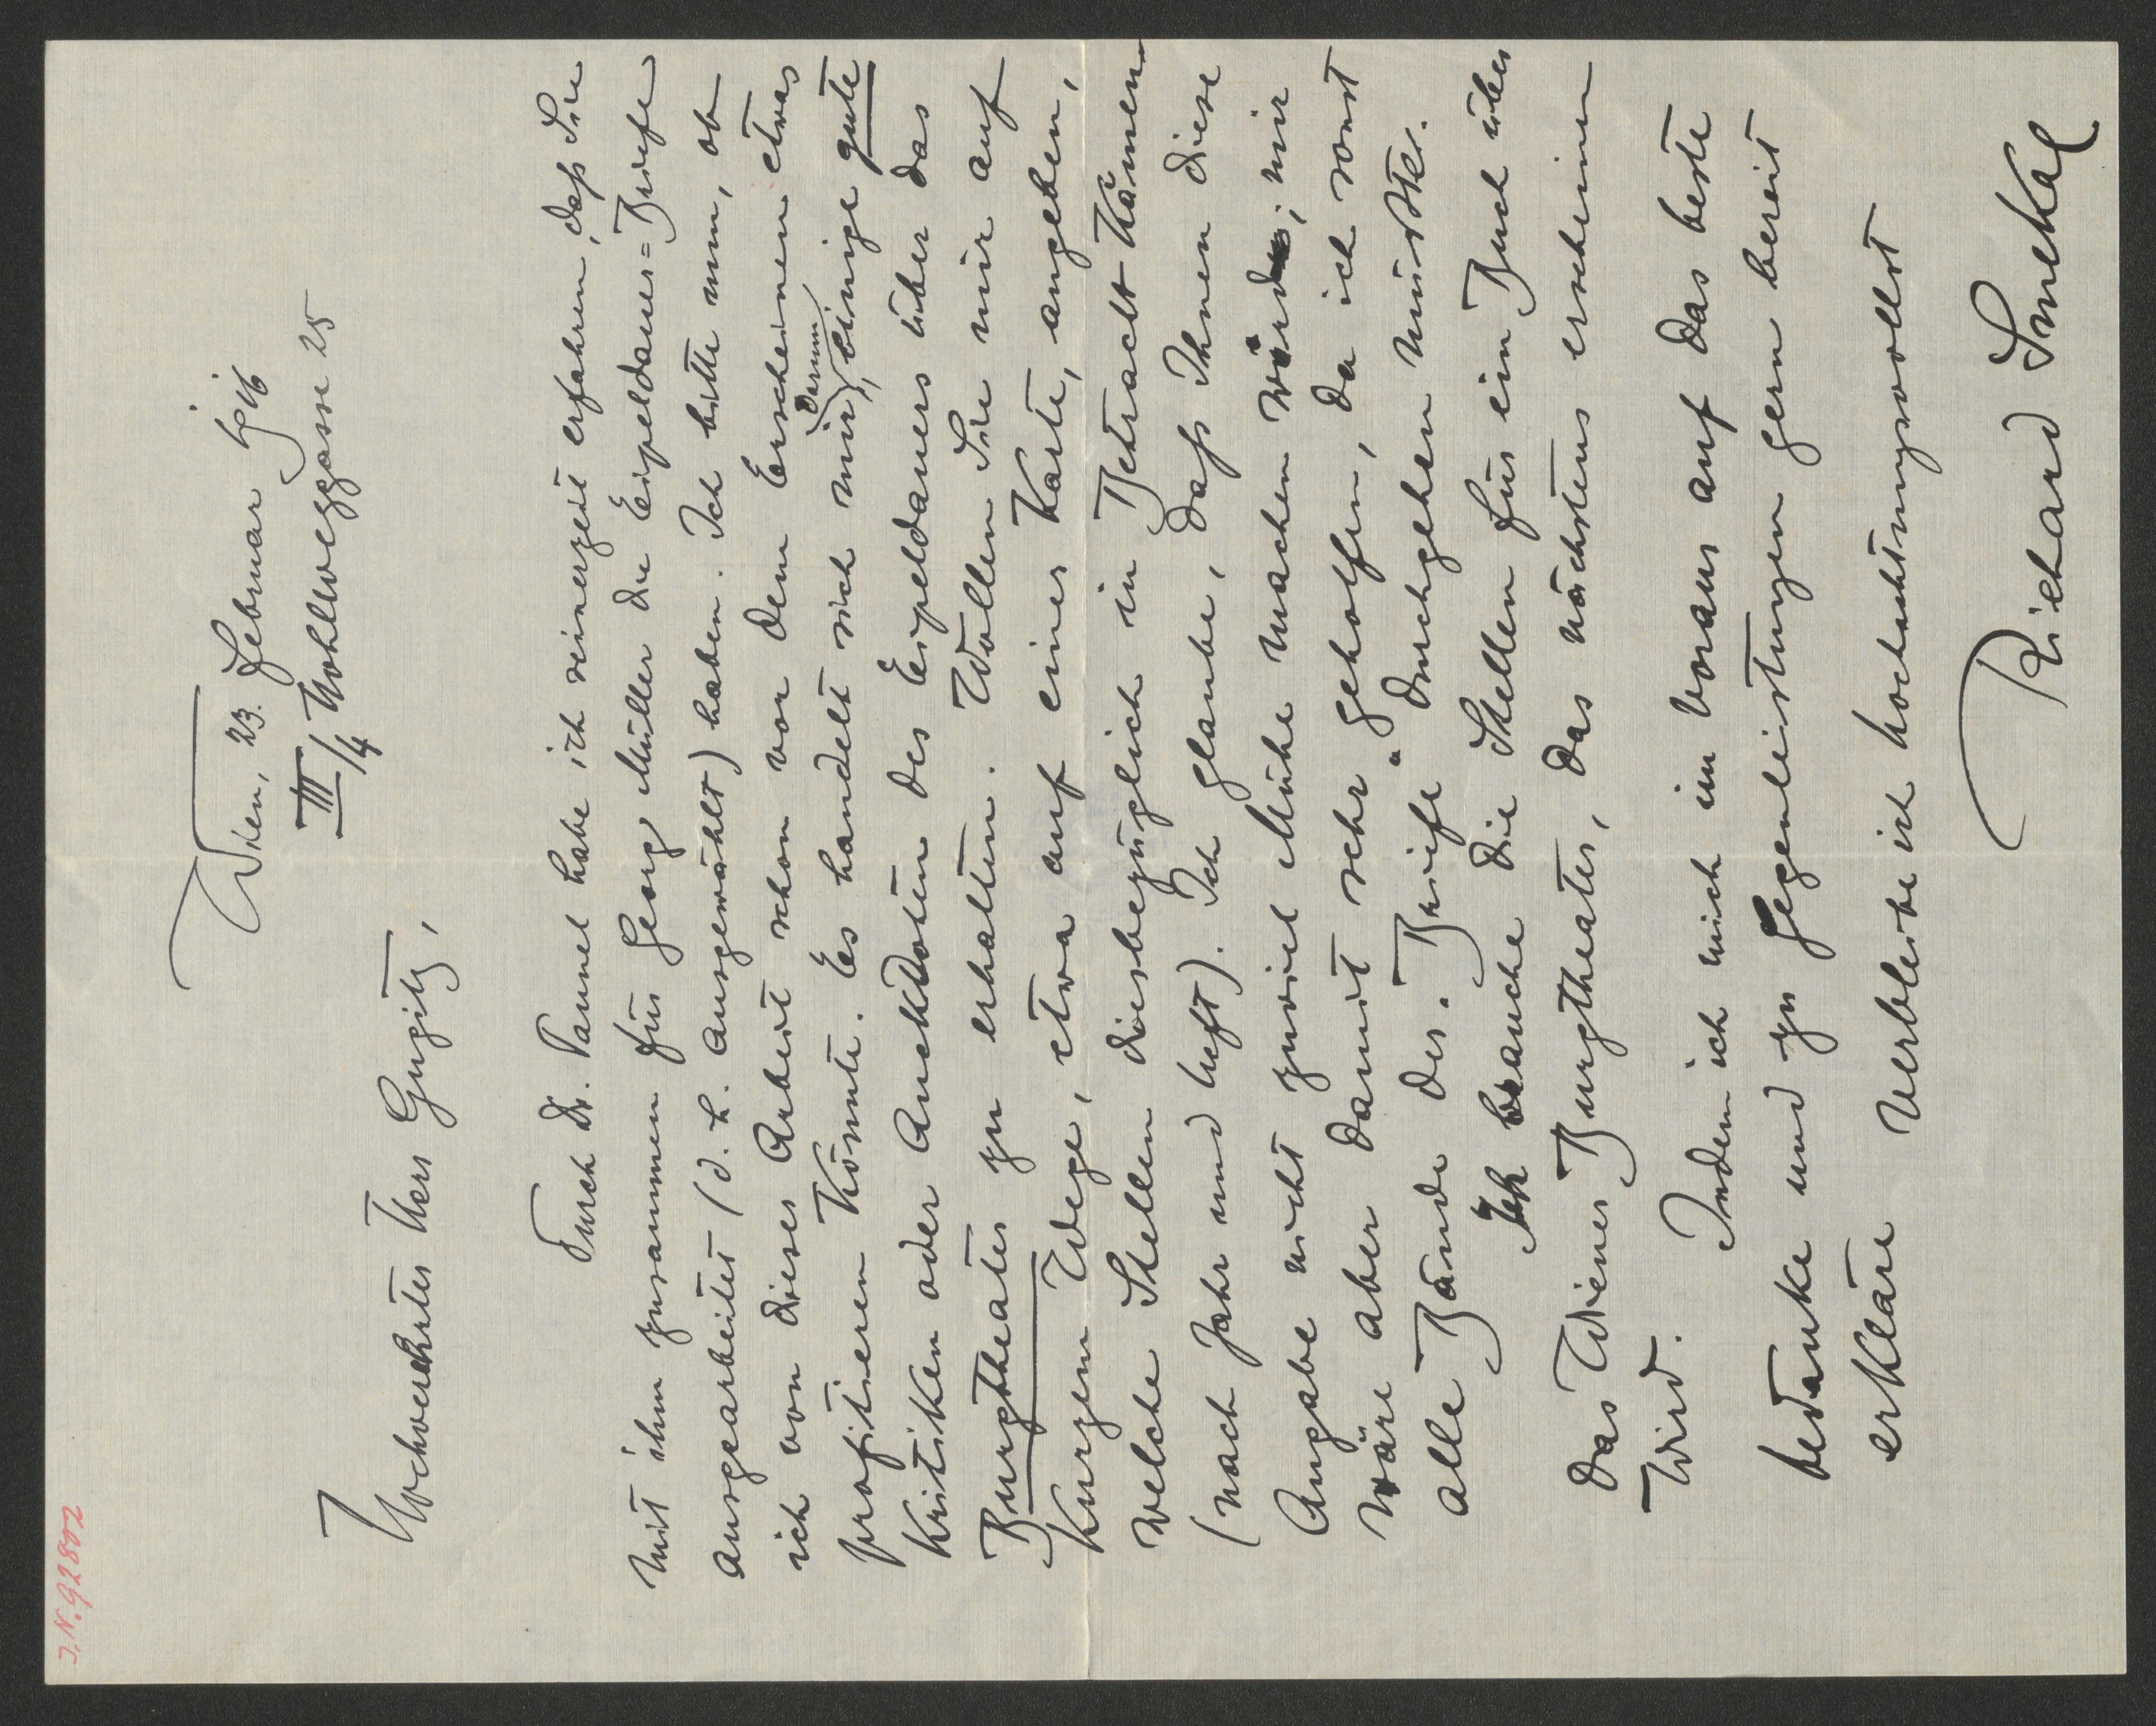 J.N. 92802
Wien, 23. Februar 1916
III/4 Kohlweggasse 25
Hochverehrter Herr Gugitz,
Durch Dr. Paunel habe ich seinerzeit erfahren, daß Sie
mit ihm zusammen für Georg Müller die Eipeldauer=Briefe
ausgearbeitet (d. h. ausgewählt) haben. Ich bitte nun, ob
ich von dieser Arbeit schon vor dem Erscheinen etwas
profitieren könnte. Es handelt sich mir darum, einige gute
Kritiken oder Anekdoten des Eipeldauers über das
Burgtheater zu erhalten. Wollen Sie mir auf
kurzem Wege, etwa auf einer Karte, angeben,
welche Stellen diesbezüglich in Betracht kämen
(nach Jahr und Heft). Ich glaube, daß Ihnen diese
Angabe nicht zuviel Mühe machen würde; mir
wäre aber damit sehr geholfen, da ich sonst
alle Bände der "Briefe" durchgehen müsste.
Ich brauche die Stellen für ein Buch über
das Wiener Burgtheater, das nächstens erscheinen
wird.
Indem ich mich im voraus auf das beste
bedanke und zu Gegenleistungen gern bereit
erkläre verbleibe ich hochachtungsvollst
Richard Smekal